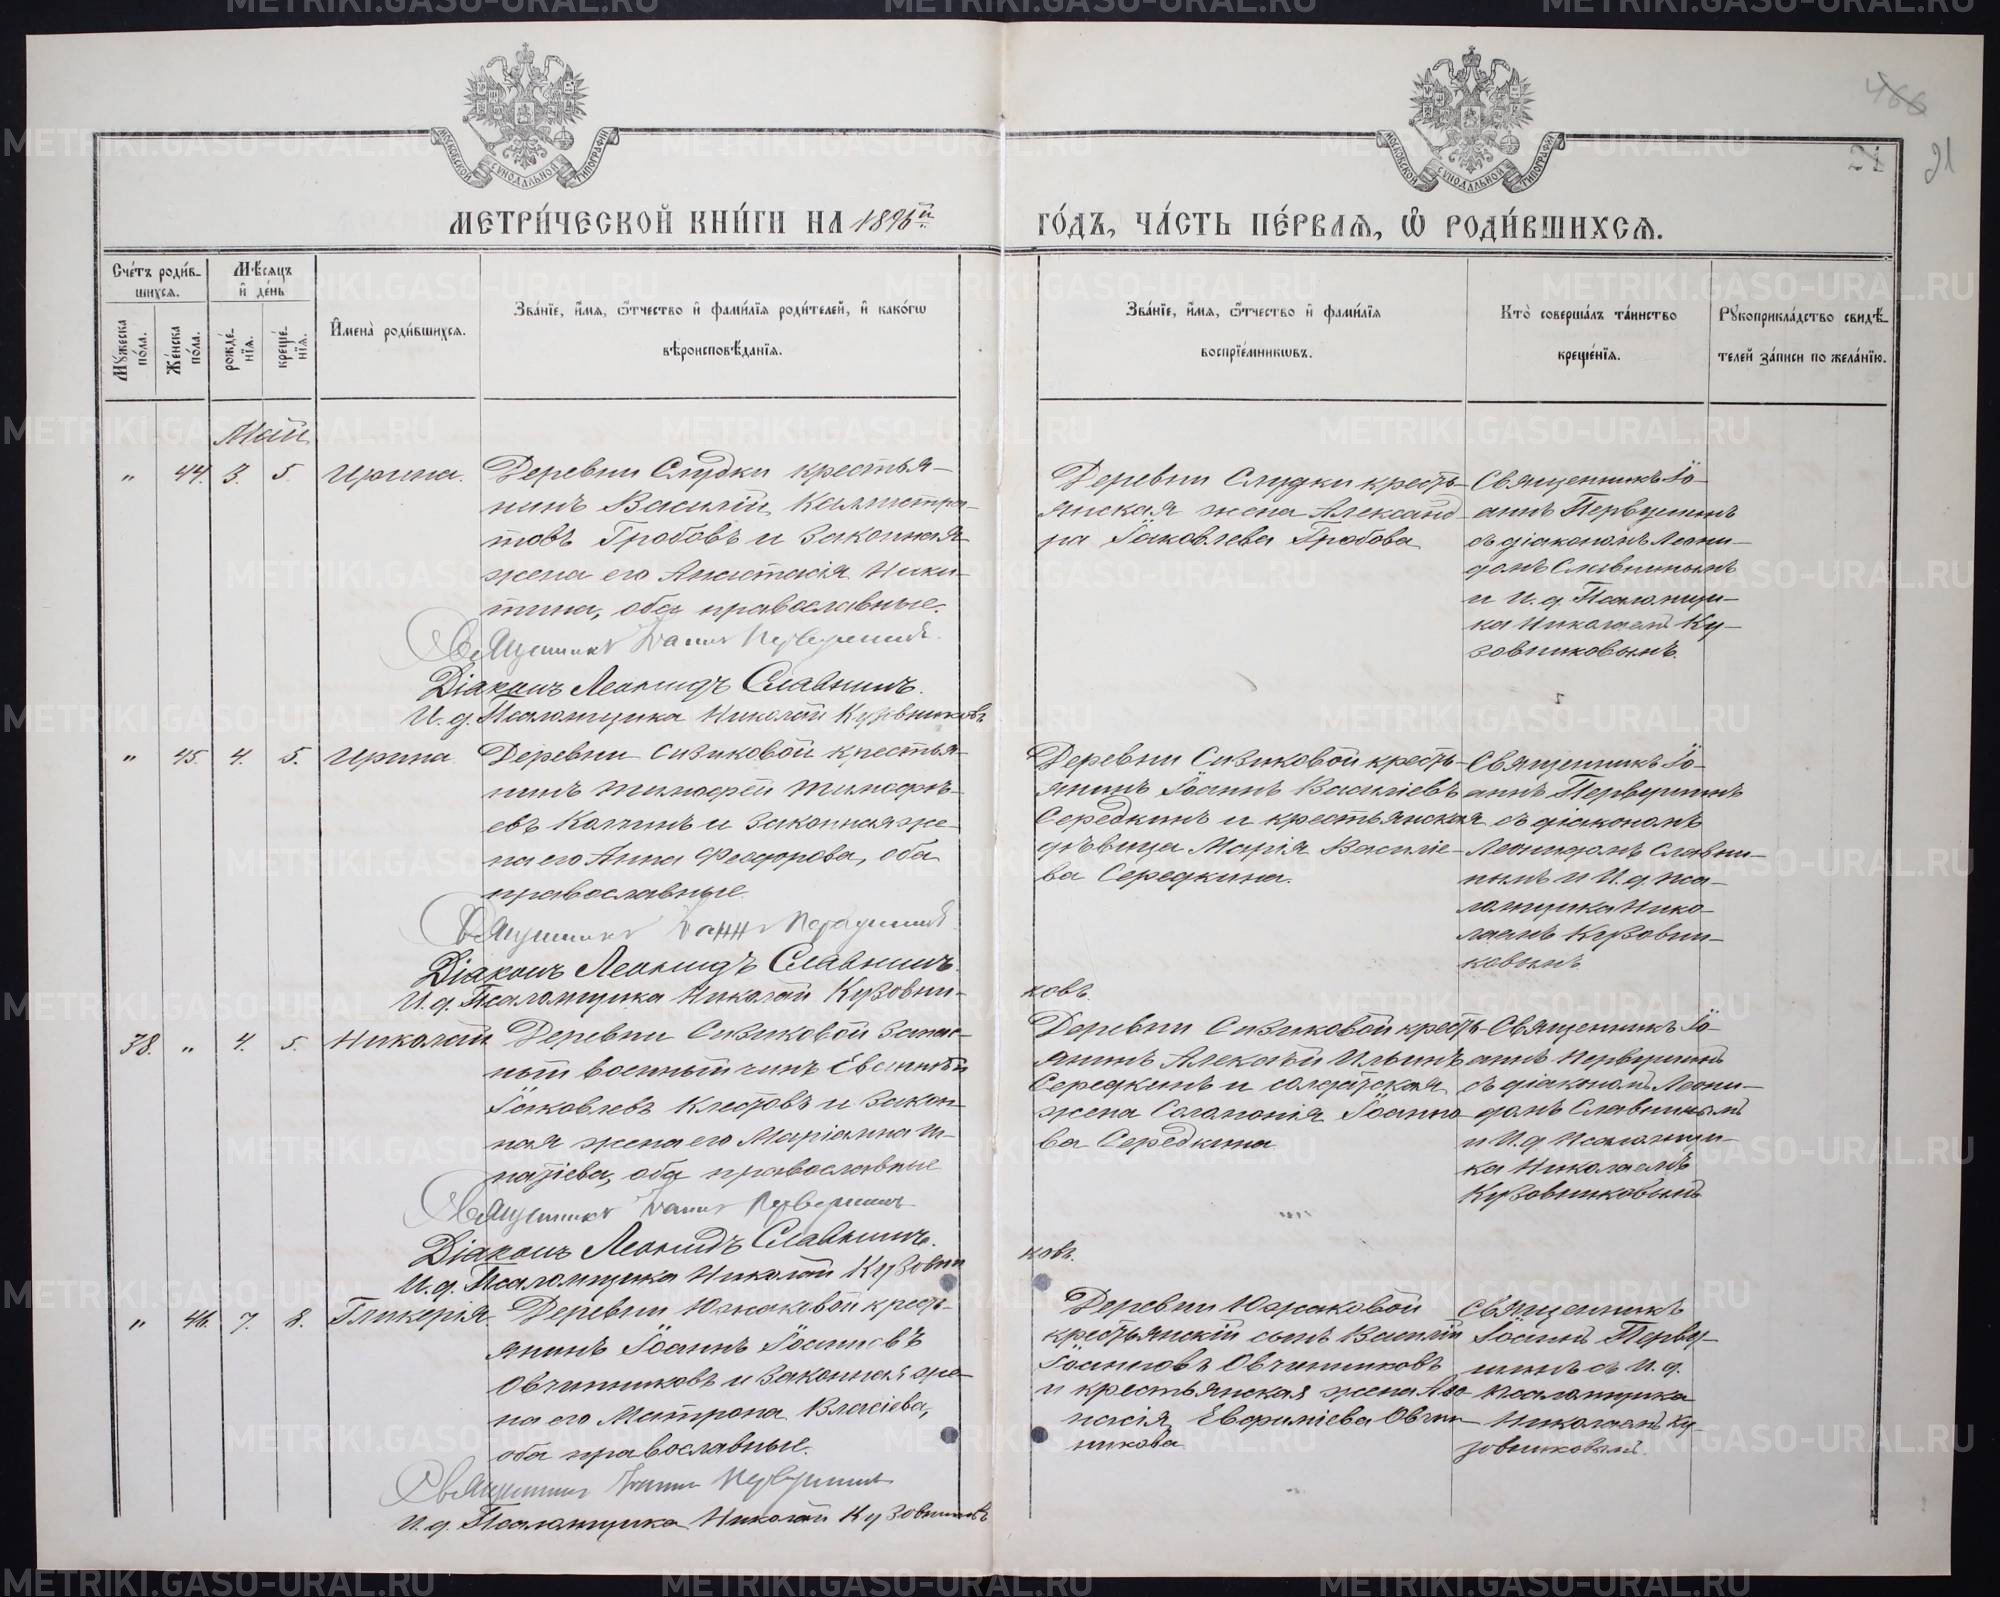 МЕТРИ́ЧЕСКОЙ КНИ́ГИ НА 1896й
ГО́ДЪ, ЧА́СТЬ ПЕ́РВАѦ, Ѡ҆ РОДИ́ВШИХСѦ.
МОСКОВСКОЙ СѴНОДАЛЬНОЙ ТИПОГРАФІИ
МОСКОВСКОЙ СѴНОДАЛЬНОЙ ТИПОГРАФІИ
466
21
91
Сче́тъ роди́в-
шихсѧ.
Мꙋ́жеска по́ла.
Же́нска по́ла.
Мѣ́сѧцъ
и҆ де́нь
рожде́-
нїѧ.
креще́-
нїѧ.
И҆мена̀ роди́вшихсѧ.
Зва́нїе, и҆́мѧ, ѻ҆́тчество и҆ фами́лїѧ роди́телей, и҆ како́гѡ
вѣроисповѣ́данїѧ.
Зва́нїе, и҆́мѧ, ѻ҆́тчество и҆ фами́лїѧ
воспрїе́мникѡвъ.
Кто̀ соверша́лъ та́инство
креще́нїѧ.
Рꙋкоприкла́дство свидѣ́-
телей за́писи по жела́нїю.
Май
" 44. 3. 5. Ирина.
Деревни Слудки крестья-
нинъ Василій Каллистра-
товъ Гробовъ и законная
жена его Анастасія Ники-
тина, оба православные.
Священникъ Іоаннъ Первушинъ.
Діаконъ Леонидъ Славнинъ.
И. д. Псаломщика Николай Кузовниковъ
Деревни Слудки кресть-
янская жена Александ-
ра Іаковлева Гробова
Священникъ Іо-
аннъ Первушинъ
съ діакономъ Леони-
домъ Славнинымъ
и И. д. Псаломщи-
ка Николаемъ Ку-
зовниковымъ.
" 45. 4. 5. Ирина
Деревни Сизиковой крестья-
нинъ Тимофей Тимофѣ-
евъ Колчинъ и законная же-
на его Анна Феодорова, оба
православные.
Священникъ Іоаннъ Первушинъ
Діаконъ Леонидъ Славнинъ.
И. д. Псаломщика Николай Кузовни-
ковъ.
Деревни Сизиковой кресть-
янинъ Іоаннъ Васильевъ
Середкинъ и крестьянская
дѣвица Марія Василіе-
ва Середкина.
Священникъ Іо-
аннъ Первушинъ
съ діакономъ
Леонидомъ Славни-
нымъ и И. д. пса-
ломщика Нико-
лаемъ Кузовни-
ковымъ
38. " 4. 5. Николай
Деревни Сизиковой запас-
ный военный чинъ Евсигній
Іаковлевъ Клестовъ и закон-
ная жена его Маріамна И-
патіева, оба православные
Священникъ Іоаннъ Первушинъ
Діаконъ Леонидъ Славнинъ.
И. д. Псаломщика Николай Кузовни
ковъ.
Деревни Сизиковой кресть-
янинъ Алексѣй Ильинъ
Середкинъ и солдатская
жена Соломонія Іоанно-
ва Середкина
Священникъ Іо-
аннъ Первушинъ
съ діакономъ Леони-
домъ Славнинымъ
и И. д Псаломщи-
ка Николаемъ
Кузовниковымъ
" 46. 7. 8. Гликерія
Деревни Южаковой кресть-
янинъ Іоаннъ Іоанновъ
Овчинниковъ и законная же-
на его Матрона Власіева,
оба православные.
Священникъ Іоаннъ Первушинъ
И. д. Псаломщика Николай Кузовниковъ
Деревни Южаковой
крестьянскій сынъ Василій
Іоанновъ Овчинниковъ
и крестьянская жена Афа-
насія Евфиміева Овчин-
никова
Священникъ
Іоаннъ Перву-
шинъ съ И. д.
псаломщика
Николаемъ Ку-
зовниковымъ.
METRIKI.GASO-URAL.RU